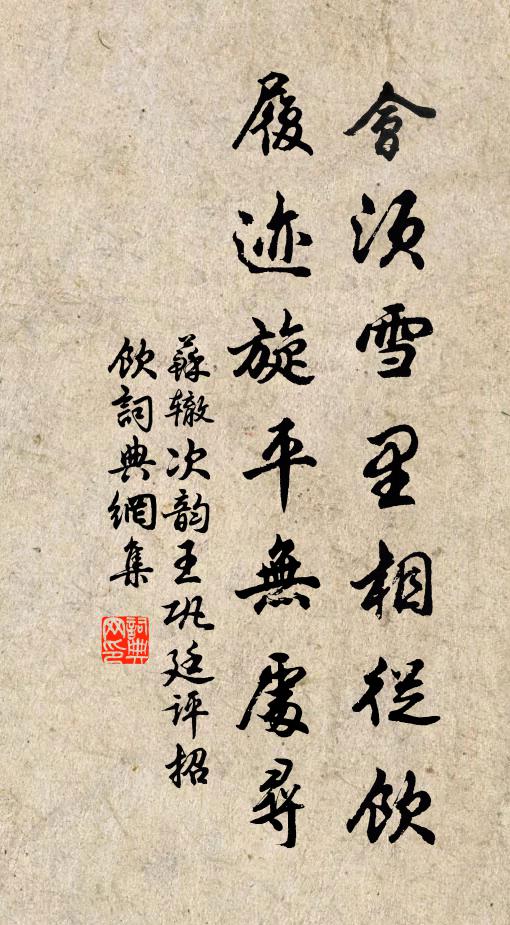 會須雪里相從飲
履迹旋平無處尋
蘇辙次韵王巩廷评招
飲詞典網集
詞典
网印